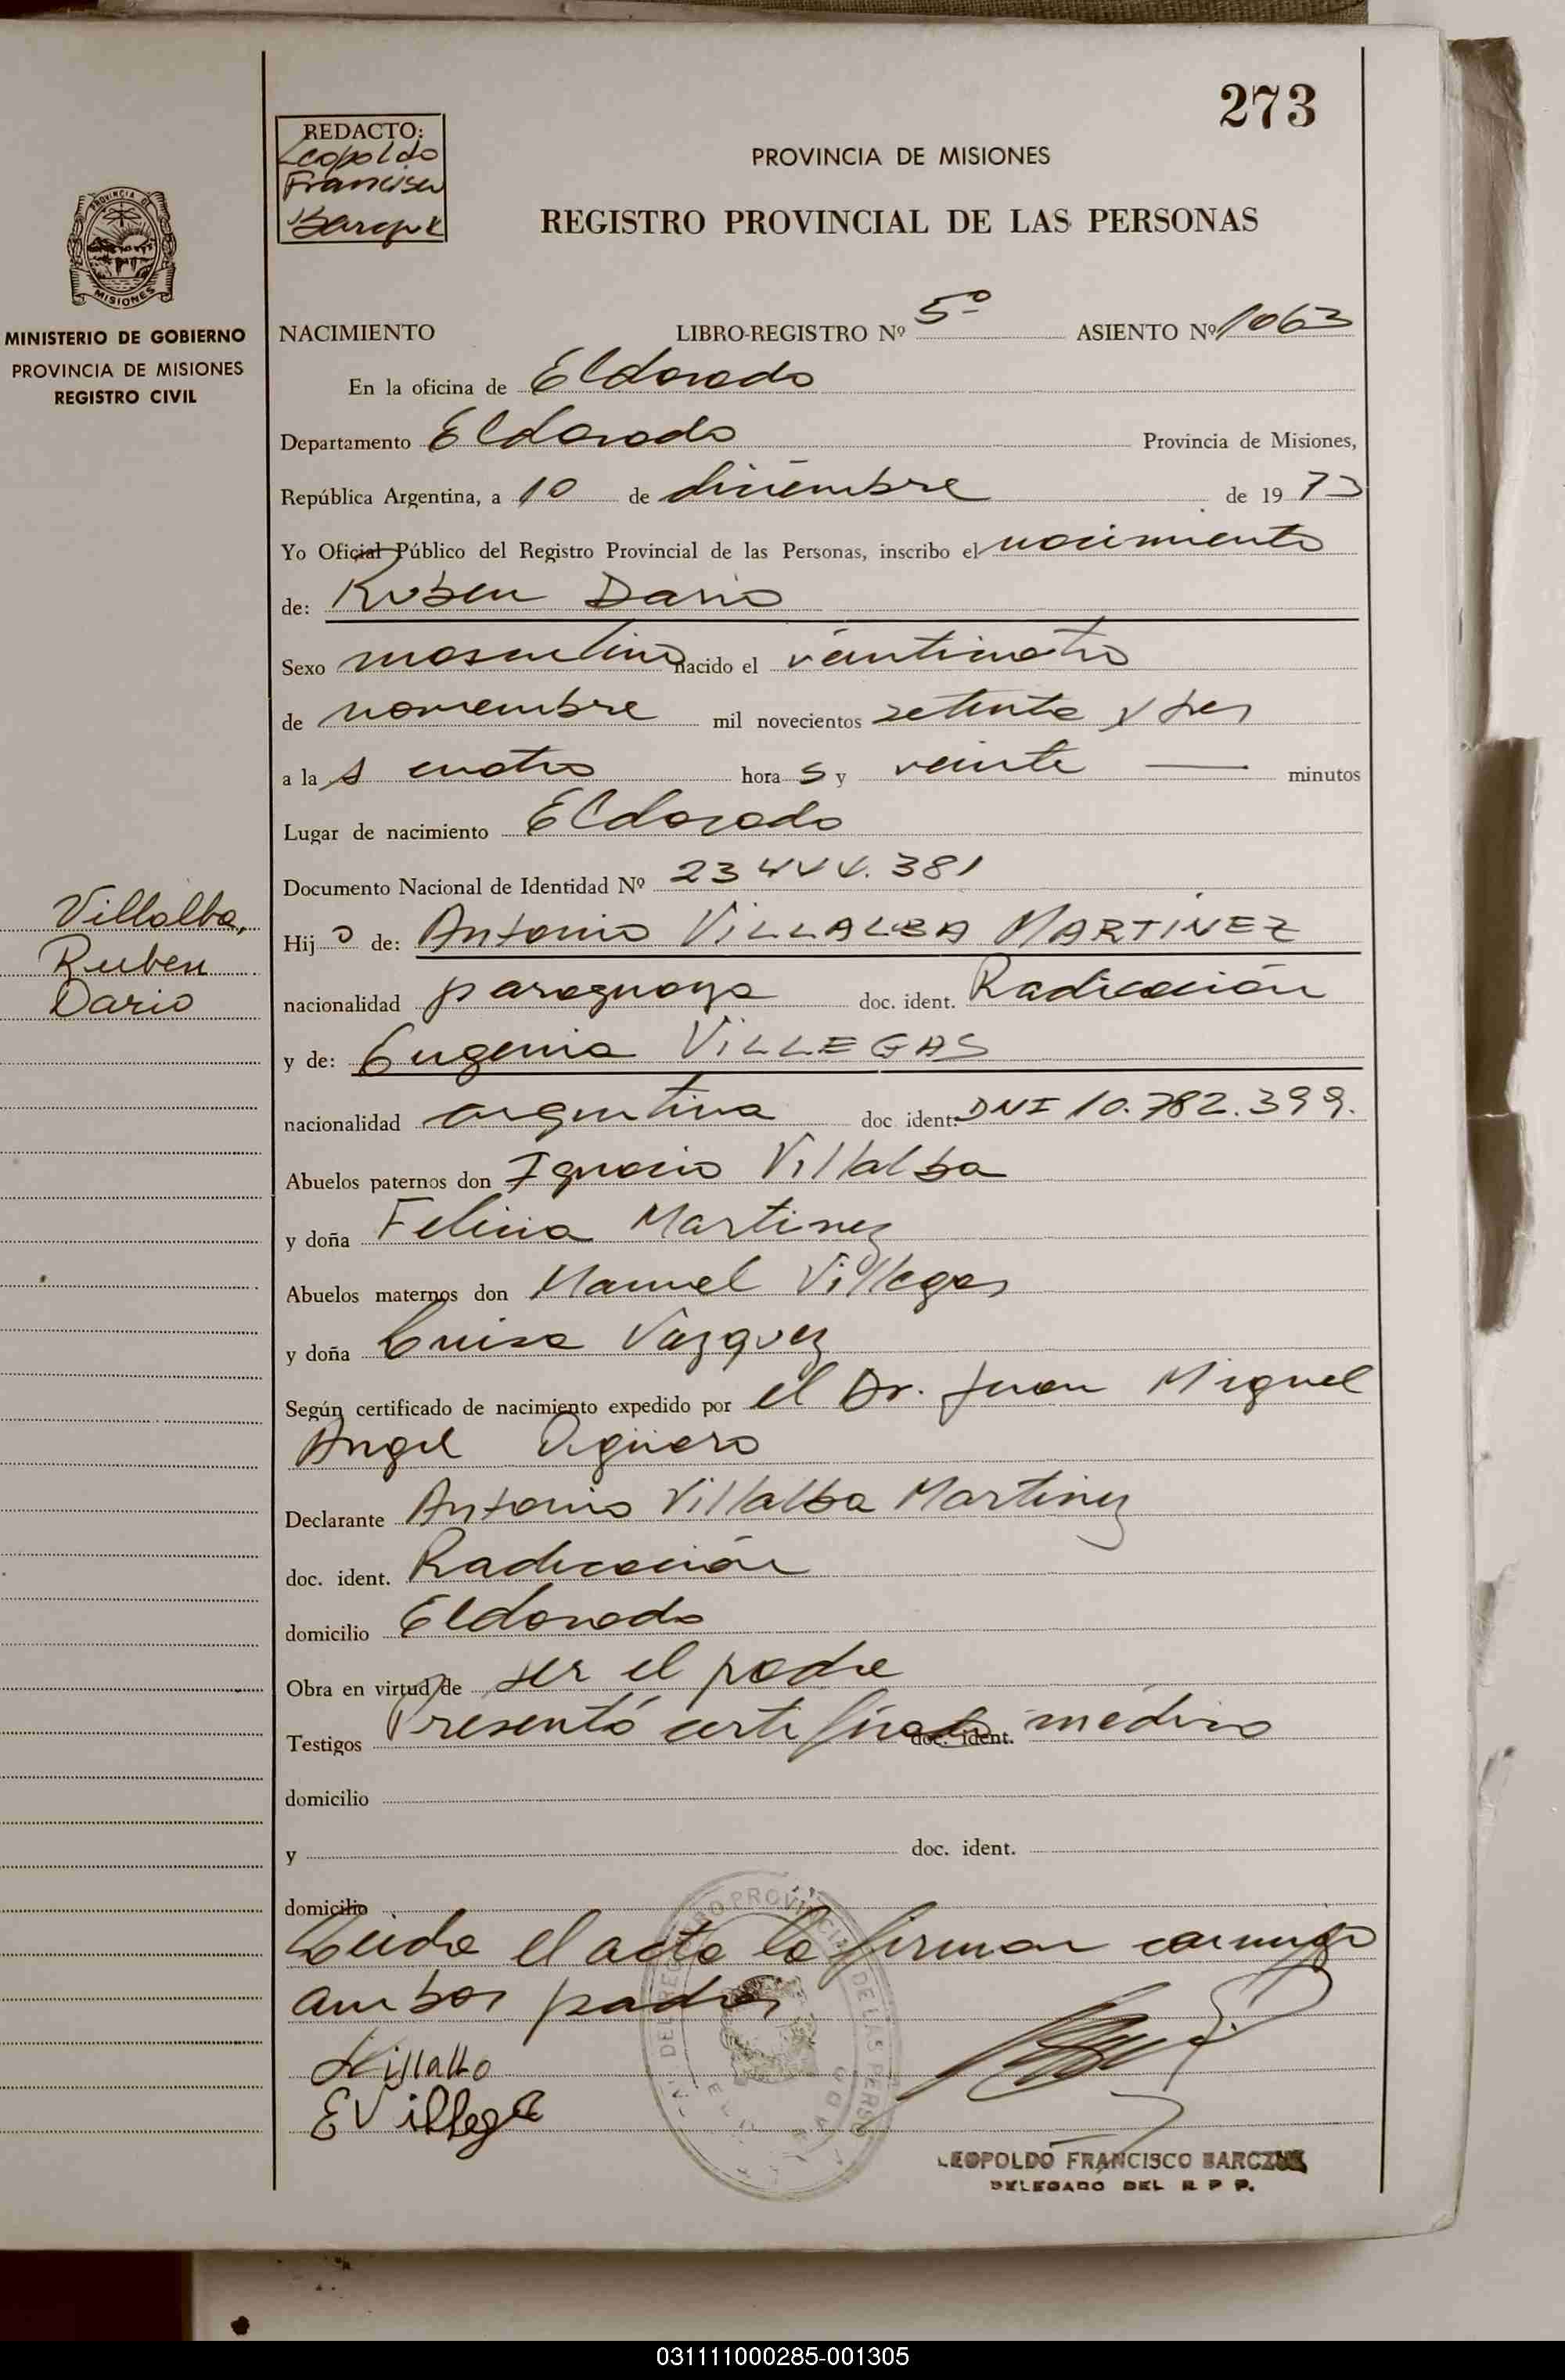 273
REDACTO:
Leopoldo
Francisco
PROVINCIA DE MISIONES
REGISTRO PROVINCIAL DE LAS PERSONAS
PROVINCIA DE
MISIONES
MINISTERIO DE GOBIERNO
PROVINCIA DE MISIONES
REGISTRO CIVIL
NACIMIENTO LIBRO-REGISTRO Nº 5º ASIENTO Nº 1063
En la oficina de Eldorado
Departamento Eldorado Provincia de Misiones,
República Argentina, a 10 de diciembre de 1973
Yo Oficial Público del Registro Provincial de las Personas, inscribo el nacimiento
de: Ruben Dario
Sexo masculino nacido el veinticuatro
de noviembre mil novecientos setenta y tres
a las cuatro horas y veinte — minutos
Lugar de nacimiento Eldorado
Documento Nacional de Identidad Nº 23.444.381
Villalba,
Ruben
Dario
Hijo de: Antonio VILLALBA MARTINEZ
nacionalidad paraguaya doc. ident. Radicación
y de: Eugenia VILLEGAS
nacionalidad argentina doc ident. DNI 10.782.399.
Abuelos paternos don Ignacio Villalba
y doña Felicia Martinez
Abuelos maternos don Manuel Villegas
y doña Luisa Vazquez
Según certificado de nacimiento expedido por el Dr. Juan Miguel
Angel Agüero
Declarante Antonio Villalba Martinez
doc. ident. Radicación
domicilio Eldorado
Obra en virtud de ser el padre
Testigos Presentó certificado doc. ident. médico
domicilio
y doc. ident.
domicilio
Leida el acta la firman conmigo
ambos padres
Villalba
E Villega
DEL REGISTRO PROVINCIAL DE LAS PERSO
LEOPOLDO FRANCISCO BARCZUK
DELEGADO DEL R P P.
031111000285-001305